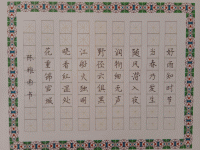 好雨知时节
当春乃发生
随风潜入夜
润物细无声
野径云俱黑
江船火独明
晓看红湿处
花重锦官城
陈雅书